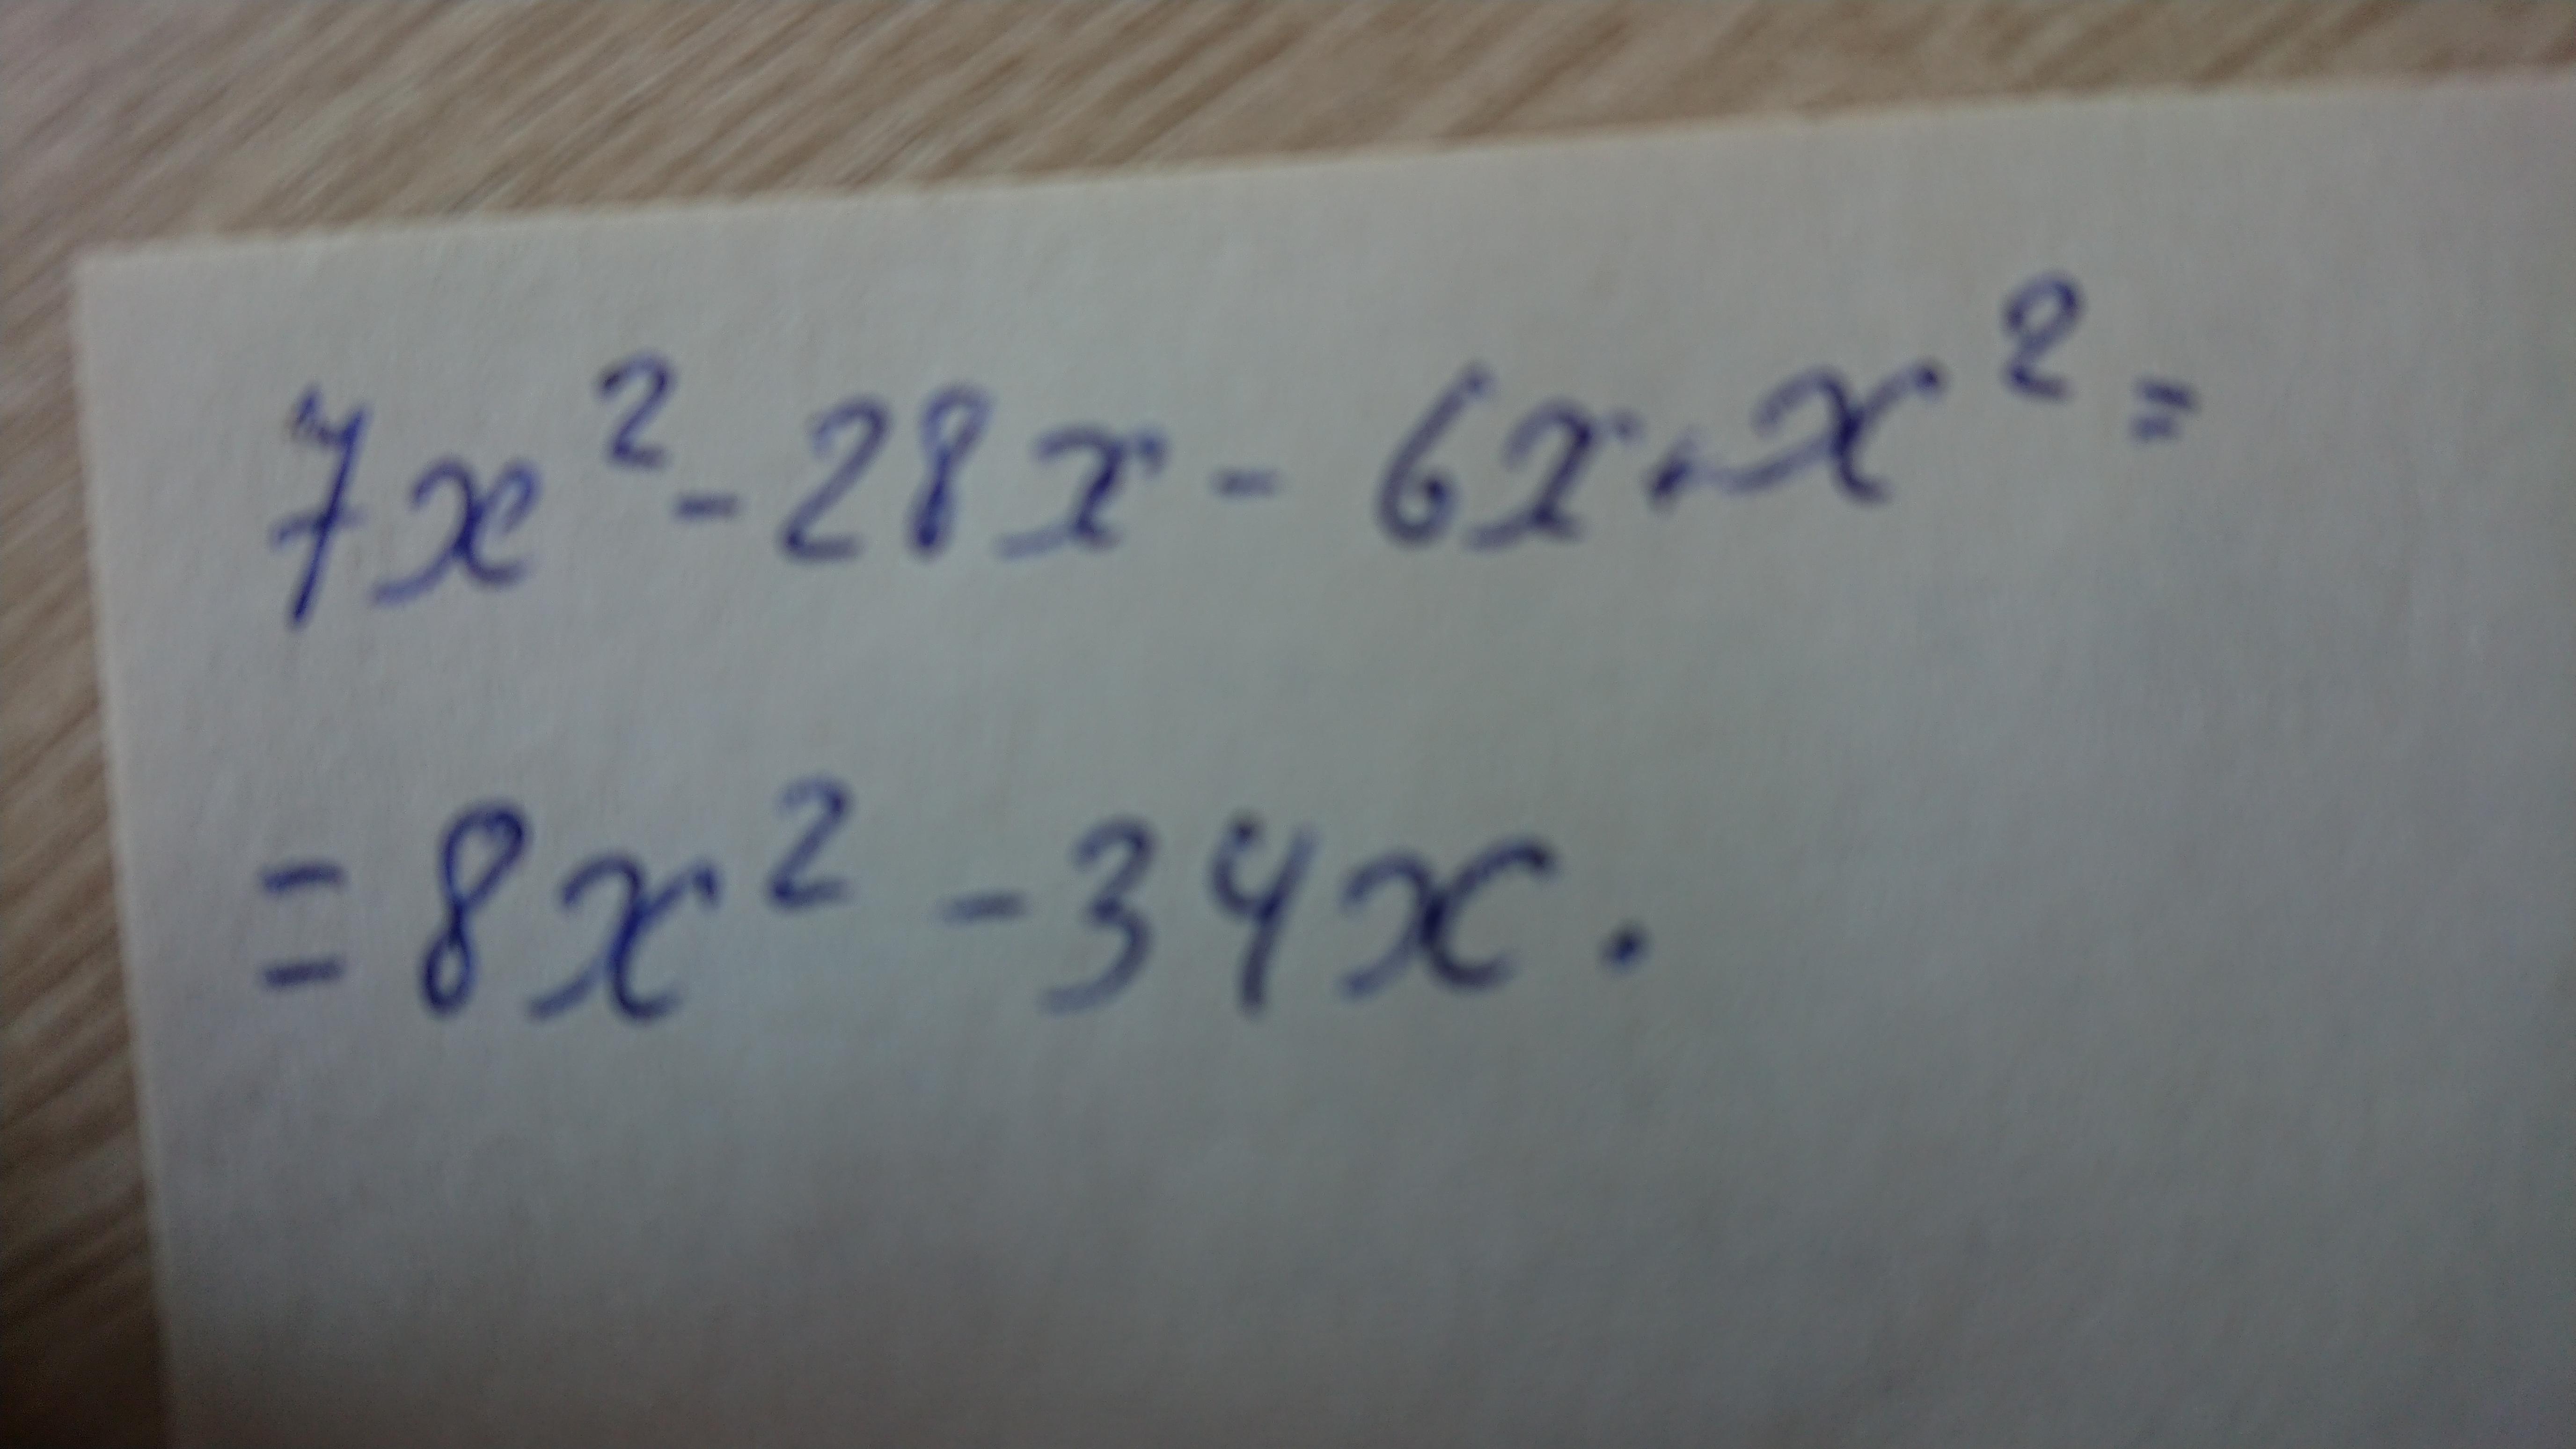 7x² - 28x - 6x + x² =
= 8x² - 34x.